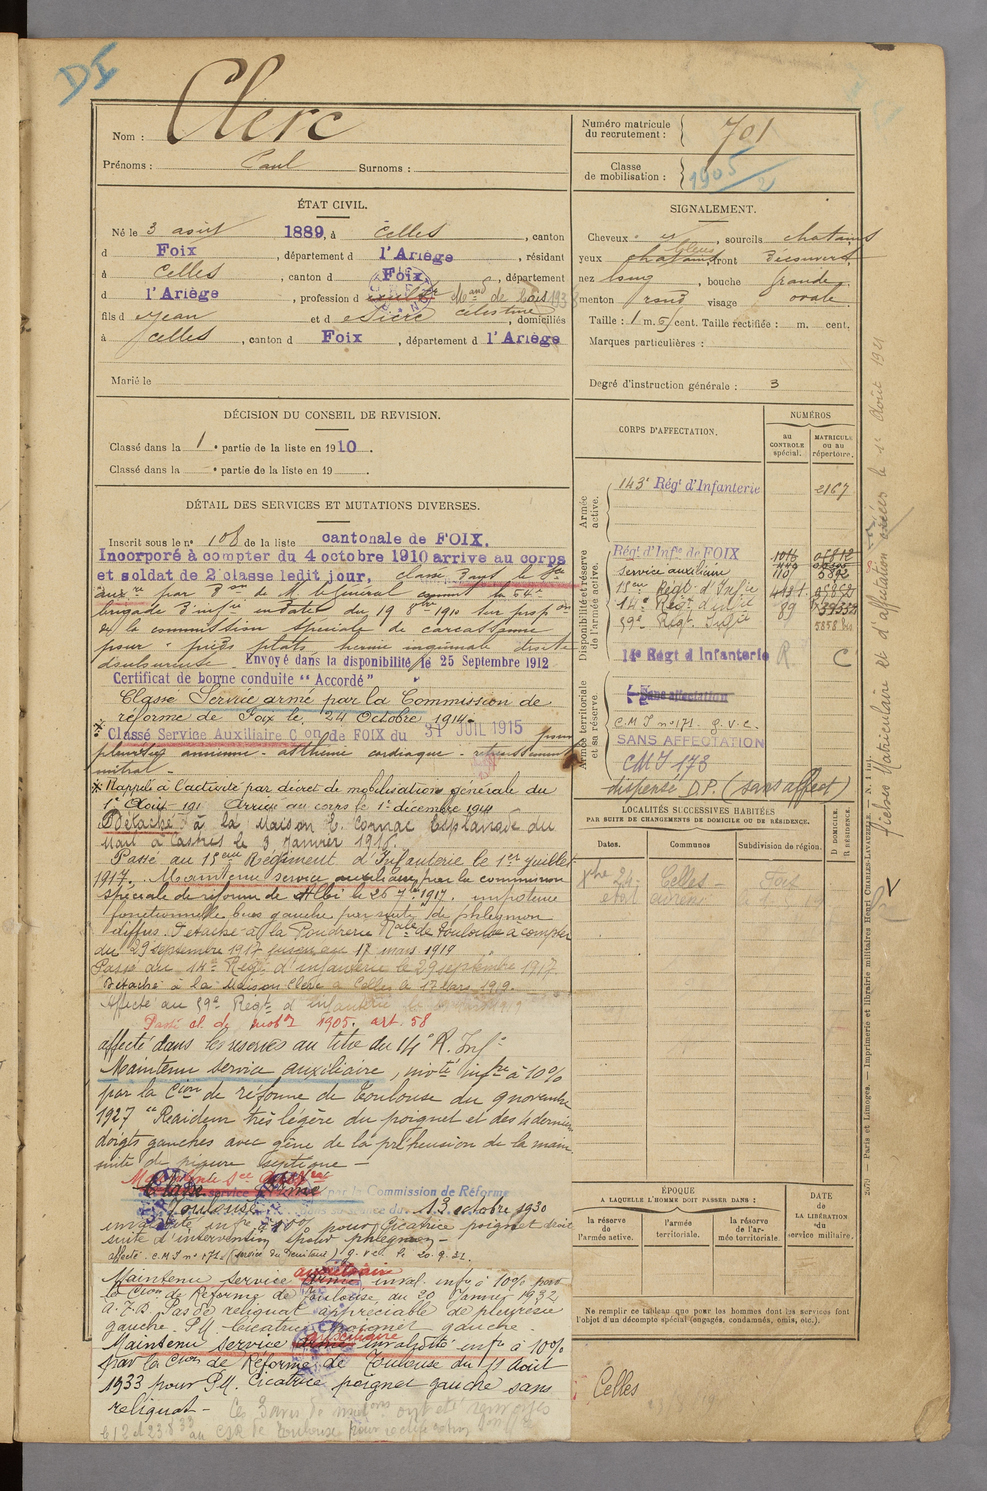 DI
Nom : Clerc
Prénoms : Paul Surnoms :
Numéro matricule du recrutement : 701
Classe de mobilisation : 1905/2
ÉTAT CIVIL.
Né le 3 août 1889, à Celles, canton
d Foix, département d l'Ariège, résidant
à Celles, canton d Foix, département
d l'Ariège, profession d Mand de bois
fils d Jean et d Sicre Célestine, domiciliés
à Celles, canton d Foix, département d l'Ariège
Marié le
SIGNALEMENT.
Cheveux sourcils chatains
yeux bleus chatains, front Découvert
nez long, bouche grande
menton rond visage ovale
Taille : 1 m. cent. Taille rectifiée : m. cent.
Marques particulières :
Degré d'instruction générale : 3
DÉCISION DU CONSEIL DE REVISION.
Classé dans la 1e partie de la liste en 1910.
Classé dans la e partie de la liste en 19 .
DÉTAIL DES SERVICES ET MUTATIONS DIVERSES.
Inscrit sous le n° 108 de la liste cantonale de FOIX.
Incorporé à compter du 4 octobre 1910 arrive au corps
et soldat de 2e classe ledit jour, classé dans le Sce
auxre par Don de M. le Général commt la 64e
brigade d'infie en date du 19 8bre 1910 sur propon
de la commission spéciale de Carcassonne
pour : pieds plats, hernie inguinale droite
douloureuse. Envoyé dans la disponibilité le 25 Septembre 1912
Certificat de bonne conduite "Accordé"
Classé Service armé par la Commission de
réforme de Foix le, 24 Octobre 1914.
Classé Service Auxiliaire Con de FOIX du 31 JUIL 1915 pour
pleurésie ancienne - asthénie cardiaque - rétrécissement
mitral -
Rappelé à l'activité par décret de mobilisation générale du
1er Août 191 Arrivé au corps le 1er décembre 1914
Détaché à la Maison E. Cormac Esplanade du
Mail à Castres le 3 Janvier 1918.
Passé au 15eme Régiment d'Infanterie le 1er juillet
1917. Maintenu service auxiliaire par la commission
spéciale de réforme de Albi le 26 7bre 1917. impotence
fonctionnelle bras gauche par suite de phlegmon
diffus. Détaché à la Poudrerie Nale de Toulouse a compter
du 29 septembre 1917 jusqu'au 17 mars 1919
Passé au 14e Régt d'infanterie le 29 septembre 1917.
Détaché à la Maison Clerc à Celles le 17 Mars 1919.
Affecté au 59e Régt d'infanterie
Passé cl. de mobon 1905. art. 58
affecté dans les réserves au titre du 14e R. Infie
Maintenu service auxiliaire, invté infre à 10%
par la Cion de réforme de Toulouse du 9 novembre
1927 "Raideur très légère du poignet et des 4 derniers
doigts gauches avec gêne de la préhension de la main
suite de piqure septique -
Maintenu Sce auxre
par la Commission de Réforme
Toulouse dans sa séance du 13 octobre 1930
invalidité infre à 10% pour Cicatrice poignet droit
suite d'intervention pour phlegmon -
affecté C.M.I n° 171 (service du Territoire) G.V.C. Pr 20.9.32.
Maintenu service armé auxiliaire inval. infre à 10% par
la Cion de Réforme de Toulouse du 20 Janvier 1932
A.F.B. Pas de reliquat appréciable de pleurésie
gauche. P.M. Cicatrice poignet gauche
Maintenu service armé auxiliaire invalidité infre à 10%
par la Cion de Réforme de Toulouse du 11 Août
1933 pour P.M. Cicatrice poignet gauche sans
reliquat -
Ces 3 avis de modons ont été renvoyés
le 12 d 23 8 33 au CSR de Toulouse pour rectification
CORPS D'AFFECTATION.
NUMÉROS
au CONTROLE spécial.
MATRICULE ou au répertoire.
Armée active.
143e Régt d'Infanterie 2167
Disponibilité et réserve de l'armée active.
Régt d'Infie de FOIX
service auxiliaire
15eme Régt d'Infie
14e Régt d'Infie 89
59e Régt Infie
14e Régt d Infanterie R. C
Armée territoriale et sa réserve.
Sans affectation
C.M.I n° 171. G.V.C.
SANS AFFECTATION
CMI 173
dispensé D.P. (sans affect)
LOCALITÉS SUCCESSIVES HABITÉES
PAR SUITE DE CHANGEMENTS DE DOMICILE OU DE RÉSIDENCE.
Dates. Communes Subdivision de région. D DOMICILE. R RÉSIDENCE.
Xbre 24 Celles - Foix
ÉPOQUE
A LAQUELLE L'HOMME DOIT PASSER DANS :
la réserve de l'armée active.
l'armée territoriale.
la réserve de l'armée territoriale.
DATE de LA LIBÉRATION du service militaire.
Ne remplir ce tableau que pour les hommes dont les services font
l'objet d'un décompte spécial (engagés, condamnés, omis, etc.).
Celles
fiches Matriculaire et d'affectation créées le 1er Août 1921
Paris et Limoges. — Imprimerie et librairie militaires Henri CHARLES-LAVAUZELLE.